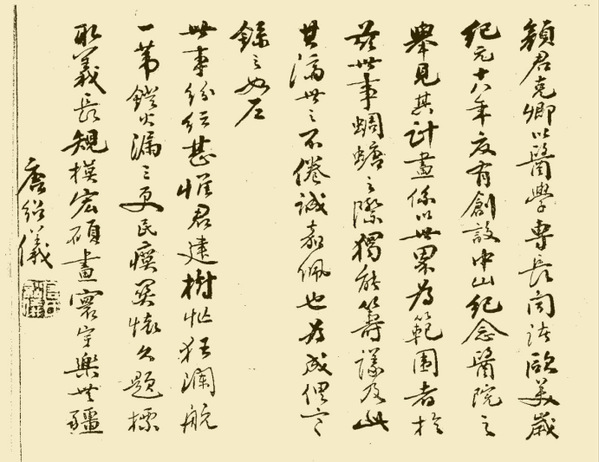 顏君克卿以醫學專長聞諸歐美歲
紀元十八年度有創設中山紀念醫院之
舉見其計畫係以世界為範圍者於
茲世事蜩螗之際獨能籌議及此
其濟世之不倦誠嘉佩也為成俚言
錄之如左
世事紛紜甚惟君建樹忙狂瀾航
一葦鐙火漏三更民瘼關懷久題標
取義長規模宏碩畫寰宇樂無疆
唐紹儀